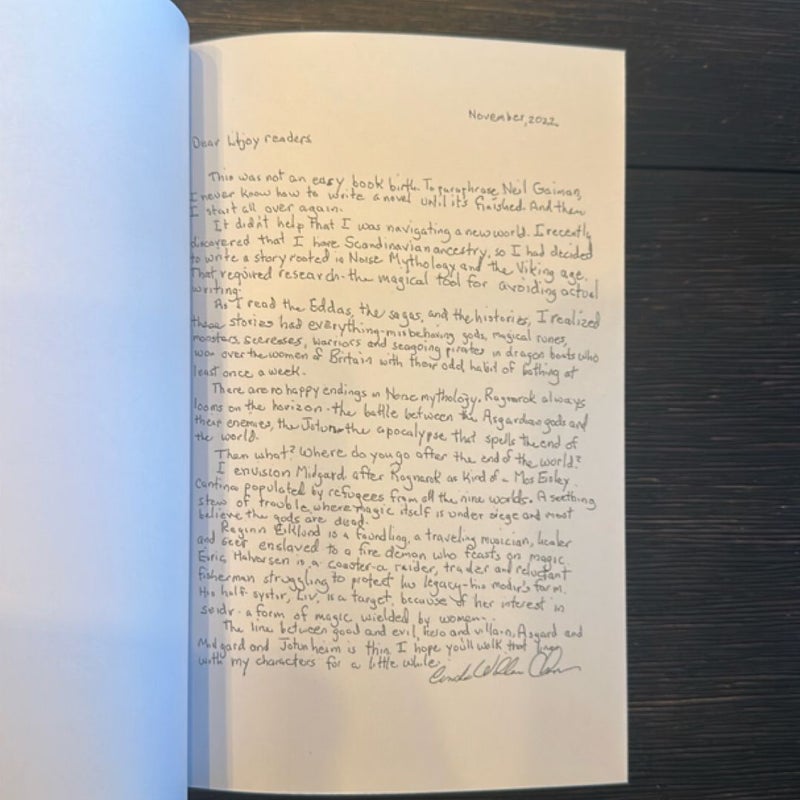 November, 2022
Dear Litjoy readers
This was not an easy book birth. To paraphrase Neil Gaiman,
I never know how to write a novel until it's finished. And then
I start all over again.
It didn't help that I was navigating a new world. I recently
discovered that I have Scandinavian ancestry, so I had decided
to write a story rooted in Norse Mythology and the Viking age.
That required research-the magical tool for avoiding actual
writing.
As I read the Eddas, the sagas, and the histories, I realized
these stories had everything-misbehaving gods, magical runes,
monsters, seeresses, warriors and seagoing pirates in dragon boats who
won over the women of Britain with their odd habit of bathing at
least once a week.
There are no happy endings in Norse mythology. Ragnarok always
looms on the horizon-the battle between the Asgardian gods and
their enemies, the Jotun-the apocalypse that spells the end of
the world.
Then what? Where do you go after the end of the world?
I envision Midgard after Ragnarok as kind of a Mos Eisley
Cantina populated by refugees from all the nine worlds. A seething
stew of trouble where magic itself is under siege and most
believe the gods are dead.
Reginn Eiklund is a foundling, a traveling musician, healer
and seer enslaved to a fire demon who feasts on magic.
Eiric Halvorsen is a coaster-a raider, trader and reluctant
fisherman struggling to protect his legacy-his modir's farm.
His half-systir, Liv, is a target, because of her interest in
seidr-a form of magic wielded by women.
The line between good and evil, hero and villain, Asgard and
Midgard and Jotunheim is thin. I hope you'll walk that line
with my characters for a little while.
Cinda Williams Chima